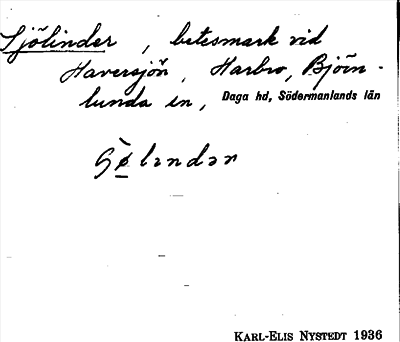 Sjölinder, betesmark vid
Haversjön, Harbro, Björn-
lunda sn, Daga hd, Södermanlands län
Ꞩø̠̀ləndər
KARL-ELIS NYSTEDT 1936